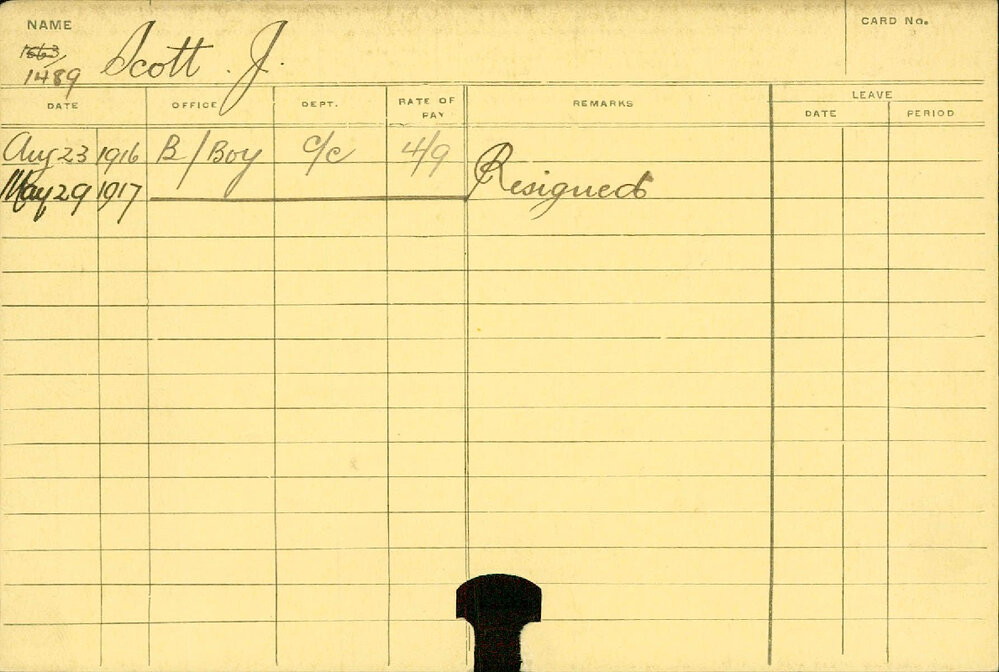 NAME
CARD No.
1663/
1489 Scott J.
DATE OFFICE DEPT. RATE OF PAY REMARKS LEAVE
DATE PERIOD
Aug 23 1916 B/Boy C/C 4/9
May 29 1917 Resigned